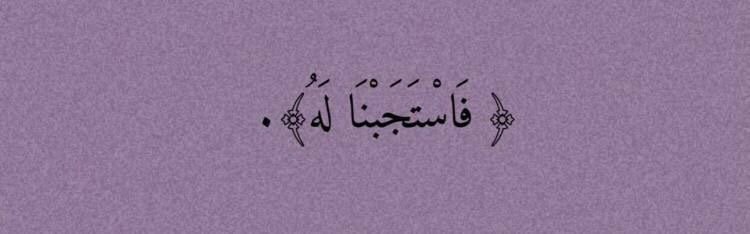 ﴿ فَاسْتَجَبْنَا لَهُ ﴾.